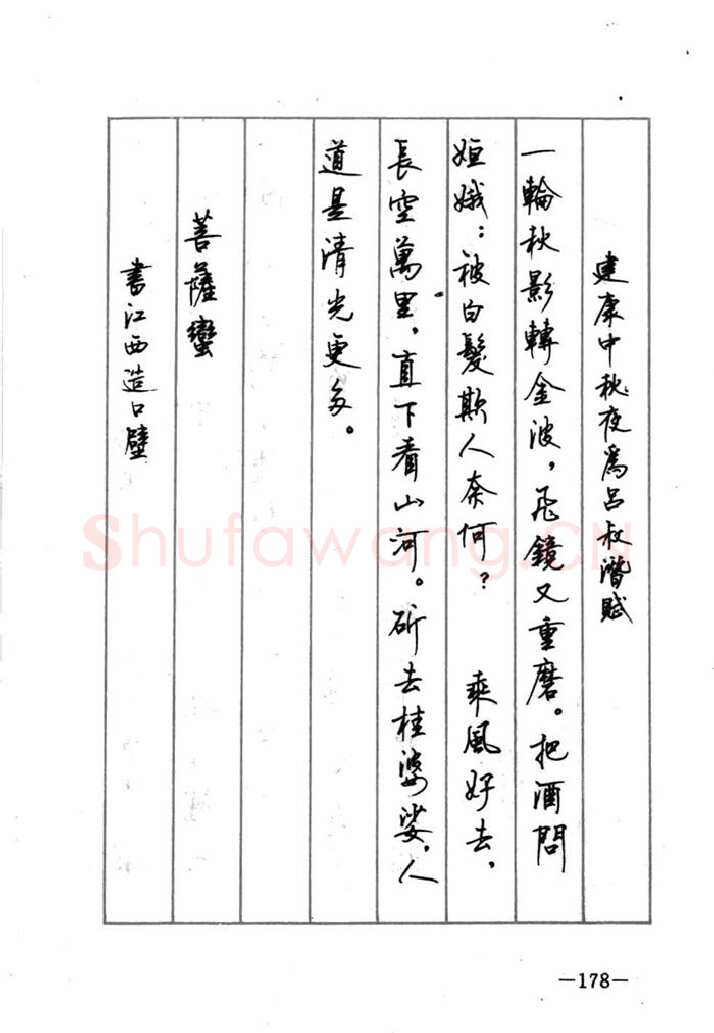 建康中秋夜爲呂叔潛賦
一輪秋影轉金波，飛鏡又重磨。把酒問
姮娥：被白髮欺人奈何？　乘風好去，
長空萬里，直下看山河。斫去桂婆娑，人
道是清光更多。
菩薩蠻
書江西造口壁
Shufawang.CN
—178—